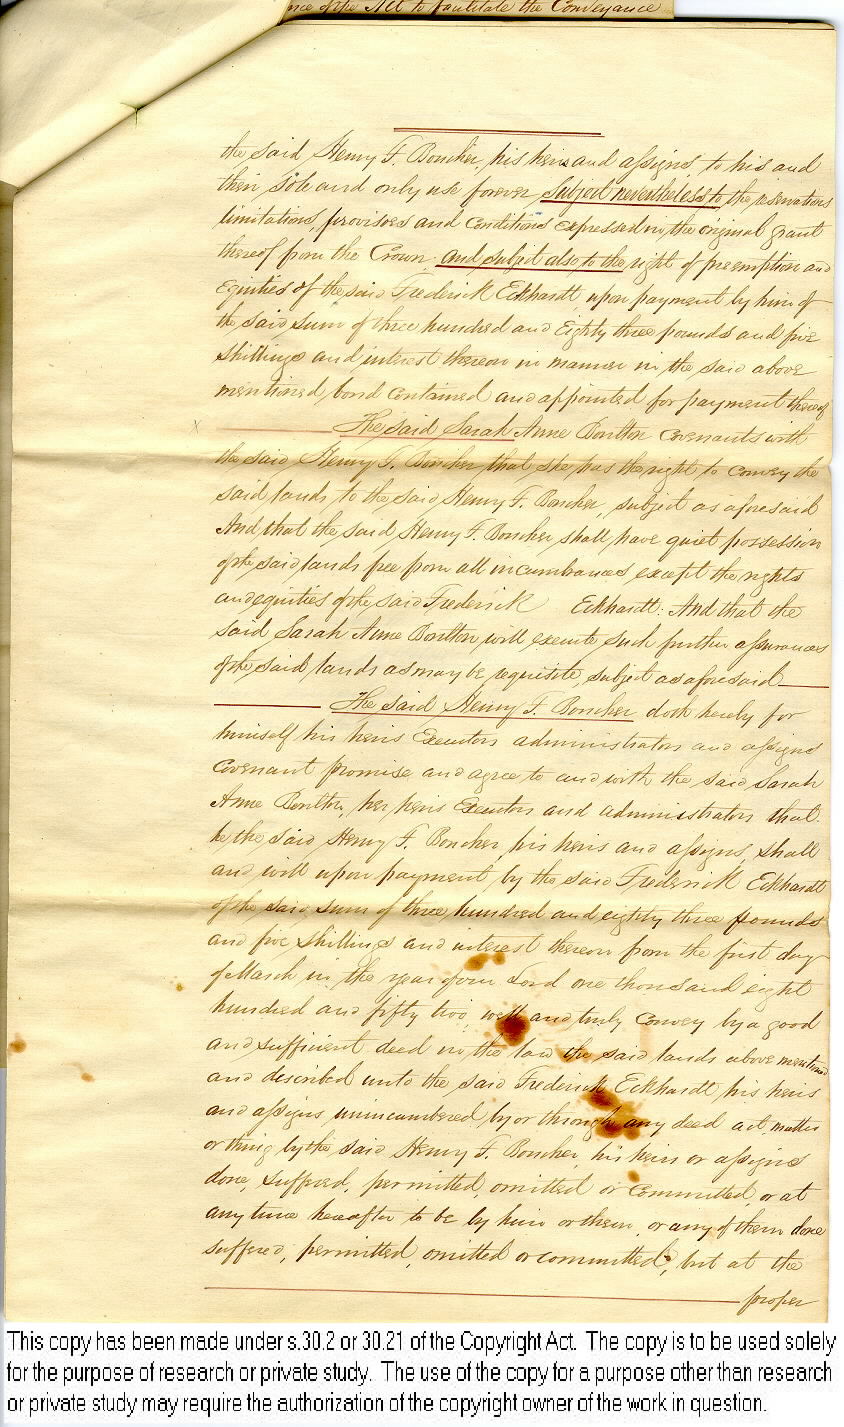 nce of the Act to facilitate the Conveyance
the said Henry F. Boucher, his heirs and assigns, to his and
their sole and only use forever, subject nevertheless to the reservations
limitations, provisoes and conditions expressed in the original grant
thereof from the Crown, and subject also to the right of preemption and
Equities of the said Frederick Eckhardt upon payment by him of
the said sum of three hundred and Eighty three pounds and five
Shillings and interest thereon in manner in the said above
mentioned bond contained and appointed for payment thereof
The said Sarah Anne Boulton Covenants with
the said Henry F. Boucher that she has the right to convey the
said lands to the said Henry F. Boucher, subject as aforesaid
And that the said Henry F. Boucher shall have quiet possession
of the said lands free from all incumbrances except the rights
and equities of the said Frederick Eckhardt. And that the
said Sarah Anne Boulton will execute such further assurances
of the said lands as may be requisite, subject as aforesaid
The said Henry F. Boucher doth hereby for
himself his heirs Executors administrators and assigns
Covenant promise and agree to and with the said Sarah
Anne Boulton, her heirs Executors and administrators that
he the said Henry F. Boucher, his heirs and assigns, shall
and will upon payment by the said Frederick Eckhardt
of the said sum of three hundred and eighty three pounds
and five shillings and interest thereon from the first day
of March in the year of our Lord one thousand eight
hundred and fifty two, well and truly convey by a good
and sufficient deed in the law the said lands above mentioned
and described unto the said Frederick Eckhardt his heirs
and assigns unincumbered by or through any deed act, matter
or thing by the said Henry F. Boucher, his heirs or assigns
done, suffered, permitted, omitted or committed, or at
any time hereafter to be by him or them, or any of them done
suffered, permitted, omitted or committed, but at the
proper
This copy has been made under s.30.2 or 30.21 of the Copyright Act. The copy is to be used solely
for the purpose of research or private study. The use of the copy for a purpose other than research
or private study may require the authorization of the copyright owner of the work in question.